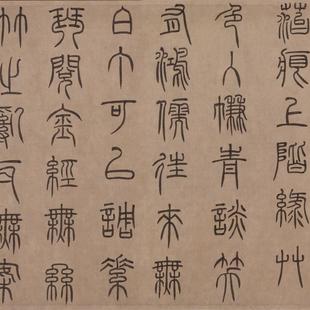 苔痕上階綠艸
色入簾青談笑
有鴻儒往來無
白丁可以調素
琴閱金經無絲
竹之亂耳無案